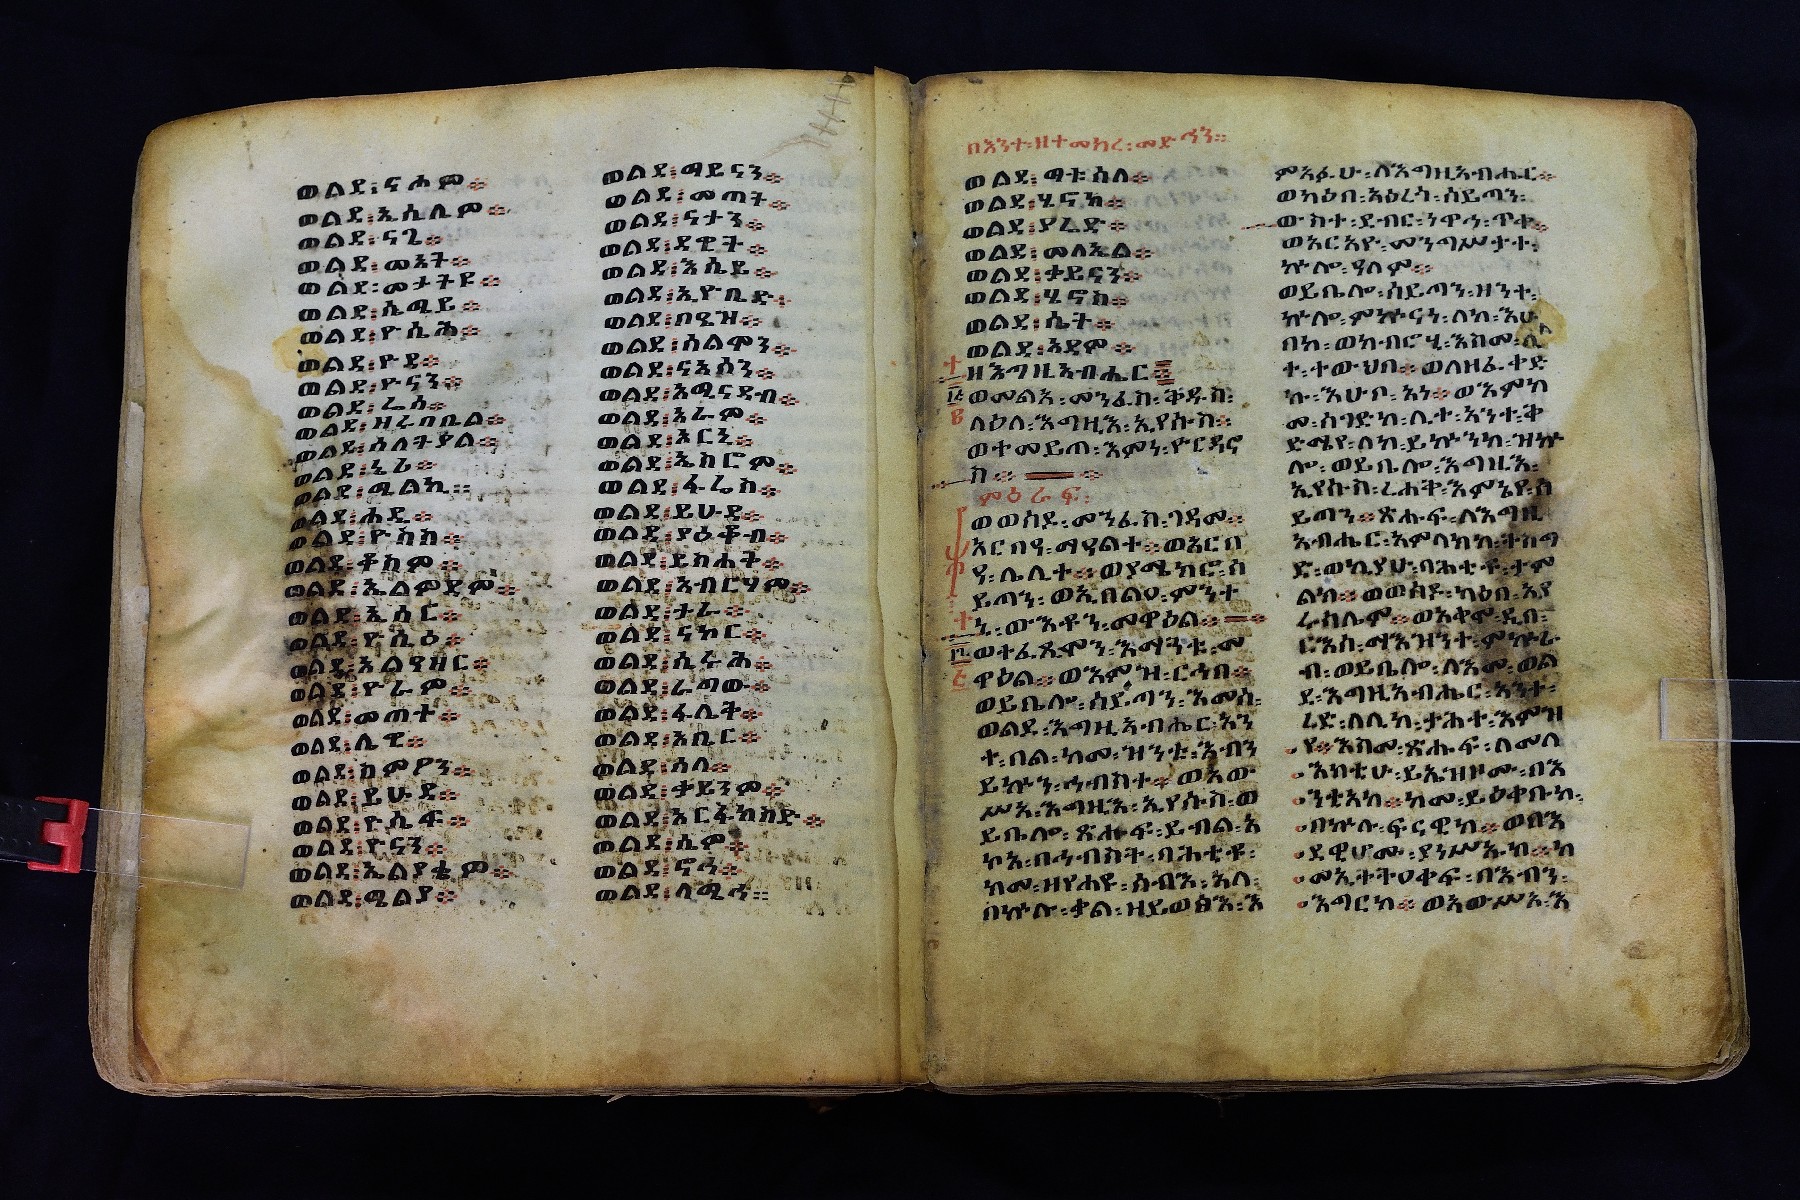 ወልደ፡ናሖም።
ወልደ፡ኤሲሊም።
ወልደ፡ናጌ።
ወልደ፡መአት።
ወልደ፡መታትዩ።
ወልደ፡ሴሜይ።
ወልደ፡ዮሴሕ።
ወልደ፡ዮዳ።
ወልደ፡ዮናን።
ወልደ፡ሬስ።
ወልደ፡ዘሩበቤል።
ወልደ፡ሰላትያል።
ወልደ፡ኔሪ።
ወልደ፡ሚልኪ።
ወልደ፡ሐዲ።
ወልደ፡ዮሴስ።
ወልደ፡ቆሰም።
ወልደ፡ኤልምዳም።
ወልደ፡ኤሴር።
ወልደ፡ዮሴዕ።
ወልደ፡አልዓዘር።
ወልደ፡ዮራም።
ወልደ፡መጠተ።
ወልደ፡ሌዊ።
ወልደ፡ስምዖን።
ወልደ፡ይሁዳ።
ወልደ፡ዮሴፍ።
ወልደ፡ዮናን።
ወልደ፡ኤልያቄም።
ወልደ፡ሜልያ።
ወልደ፡ማይናን።
ወልደ፡መጠት።
ወልደ፡ናታን።
ወልደ፡ዳዊት።
ወልደ፡እሴይ።
ወልደ፡ኢዮቤድ።
ወልደ፡በዔዝ።
ወልደ፡ሰልሞን።
ወልደ፡ናአሶን።
ወልደ፡አሚናዳብ።
ወልደ፡አራም።
ወልደ፡አርኒ።
ወልደ፡ኤስሮም።
ወልደ፡ፋሬስ።
ወልደ፡ይሁዳ።
ወልደ፡ያዕቆብ።
ወልደ፡ይስሐቅ።
ወልደ፡አብርሃም።
ወልደ፡ታራ።
ወልደ፡ናኮር።
ወልደ፡ሴሩሕ።
ወልደ፡ራግው።
ወልደ፡ፋሌቅ።
ወልደ፡አቤር።
ወልደ፡ሳላ።
ወልደ፡ቃይንም።
ወልደ፡አርፋክስድ።
ወልደ፡ሴም።
ወልደ፡ኖኅ።
ወልደ፡ላሜኅ።
በእንተ፡ዘተመከረ፡መድኅን።
ወልደ፡ማቱሳላ።
ወልደ፡ሄኖክ።
ወልደ፡ያሬድ።
ወልደ፡መላኤል።
ወልደ፡ቃይናን።
ወልደ፡ሄኖስ።
ወልደ፡ሴት።
ወልደ፡አዳም።
ዘእግዚአብሔር።
ወመልአ፡መንፈስ፡ቅዱስ፡
ላዕለ፡እግዚእ፡ኢየሱስ።
ወተመይጠ፡እምነ፡ዮርዳኖ
ስ።
ምዕራፍ፡
ወወሰዶ፡መንፈስ፡ገዳመ።
አርበዓ፡ማዓልተ።ወአርበ
ዓ፡ሌሊተ።ወያሜክሮ፡ሰ
ይጣን፡ወኢበልዐ፡ምንተ
ኒ፡ውእቶን፡መዋዕል።
ወተፈጺሞን፡እማንቱ፡መ
ዋዕል።ወእምዝ፡ርኅበ።
ወይቤሎ፡ሰይጣን፡እመሰ፡
ወልደ፡እግዚአብሔር፡አን
ተ፡በል፡ከመ፡ዝንቱ፡እብን
ይኩን፡ኅብስተ።ወአው
ሥአ፡እግዚእ፡ኢየሱስ፡ወ
ይቤሎ፡ጽሑፍ፡ይብል፡አ
ኮአ፡በኅብስት፡ባሕቲቶ፡
ከመ፡ዘየሐዩ፡ሰብእ፡አላ፡
በኵሉ፡ቃል፡ዘይወፅእ፡እ
ምአፉሁ፡ለእግዚአብሔር።
ወካዕበ፡አዕረጎ፡ሰይጣን፡
ውስተ፡ደብር፡ነዋኅ፡ጥቀ።
ወአርአዮ፡መንግሥታተ፡
ኵሎ፡ዓለም።
ወይቤሎ፡ሰይጣን፡ዝንተ፡
ኵሎ፡ምኵናነ፡ለከ፡እሁ
በከ፡ወክብሮሂ፡እስመ፡ሊ
ተ፡ተውህበ።ወለዘፈቀድ
ኩ፡እሁቦ፡አነ።ወእምከ
መ፡ሰገድከ፡ሊተ፡አንተ፡ቅ
ድሜየ፡ለከ፡ይኩንከ፡ዝኵ
ሎ፡ወይቤሎ፡እግዚእ፡
ኢየሱስ፡ረሐቅ፡እምኔየ፡ሰ
ይጣን።ጽሑፍ፡ለእግዚ
አብሔር፡አምላክከ፡ትሰግ
ድ፡ወኪያሁ፡ባሕቲቶ፡ታም
ልክ።ወወሰዶ፡ካዕበ፡ኢየ
ሩሳሌም።ወአቀሞ፡ዲበ፡
ርእሰ፡ማእዝንተ፡ምኵራ
ብ፡ወይቤሎ፡ለእመ፡ወል
ደ፡እግዚአብሔር፡አንተ፡
ረድ፡ለሊከ፡ታሕተ፡እምዝ
የ።እስመ፡ጽሑፍ፡ለመላ
እክቲሁ፡ይኤዝዞሙ፡በእ
ንቲአከ።ከመ፡ይዕቀቡከ፡
በኵሉ፡ፍናዊከ።ወበእ
ደዊሆሙ፡ያነሥኡከ።ከ
መ፡ኢትትዐቀፍ፡በእብን፡
እግርከ።ወአውሥአ፡እ